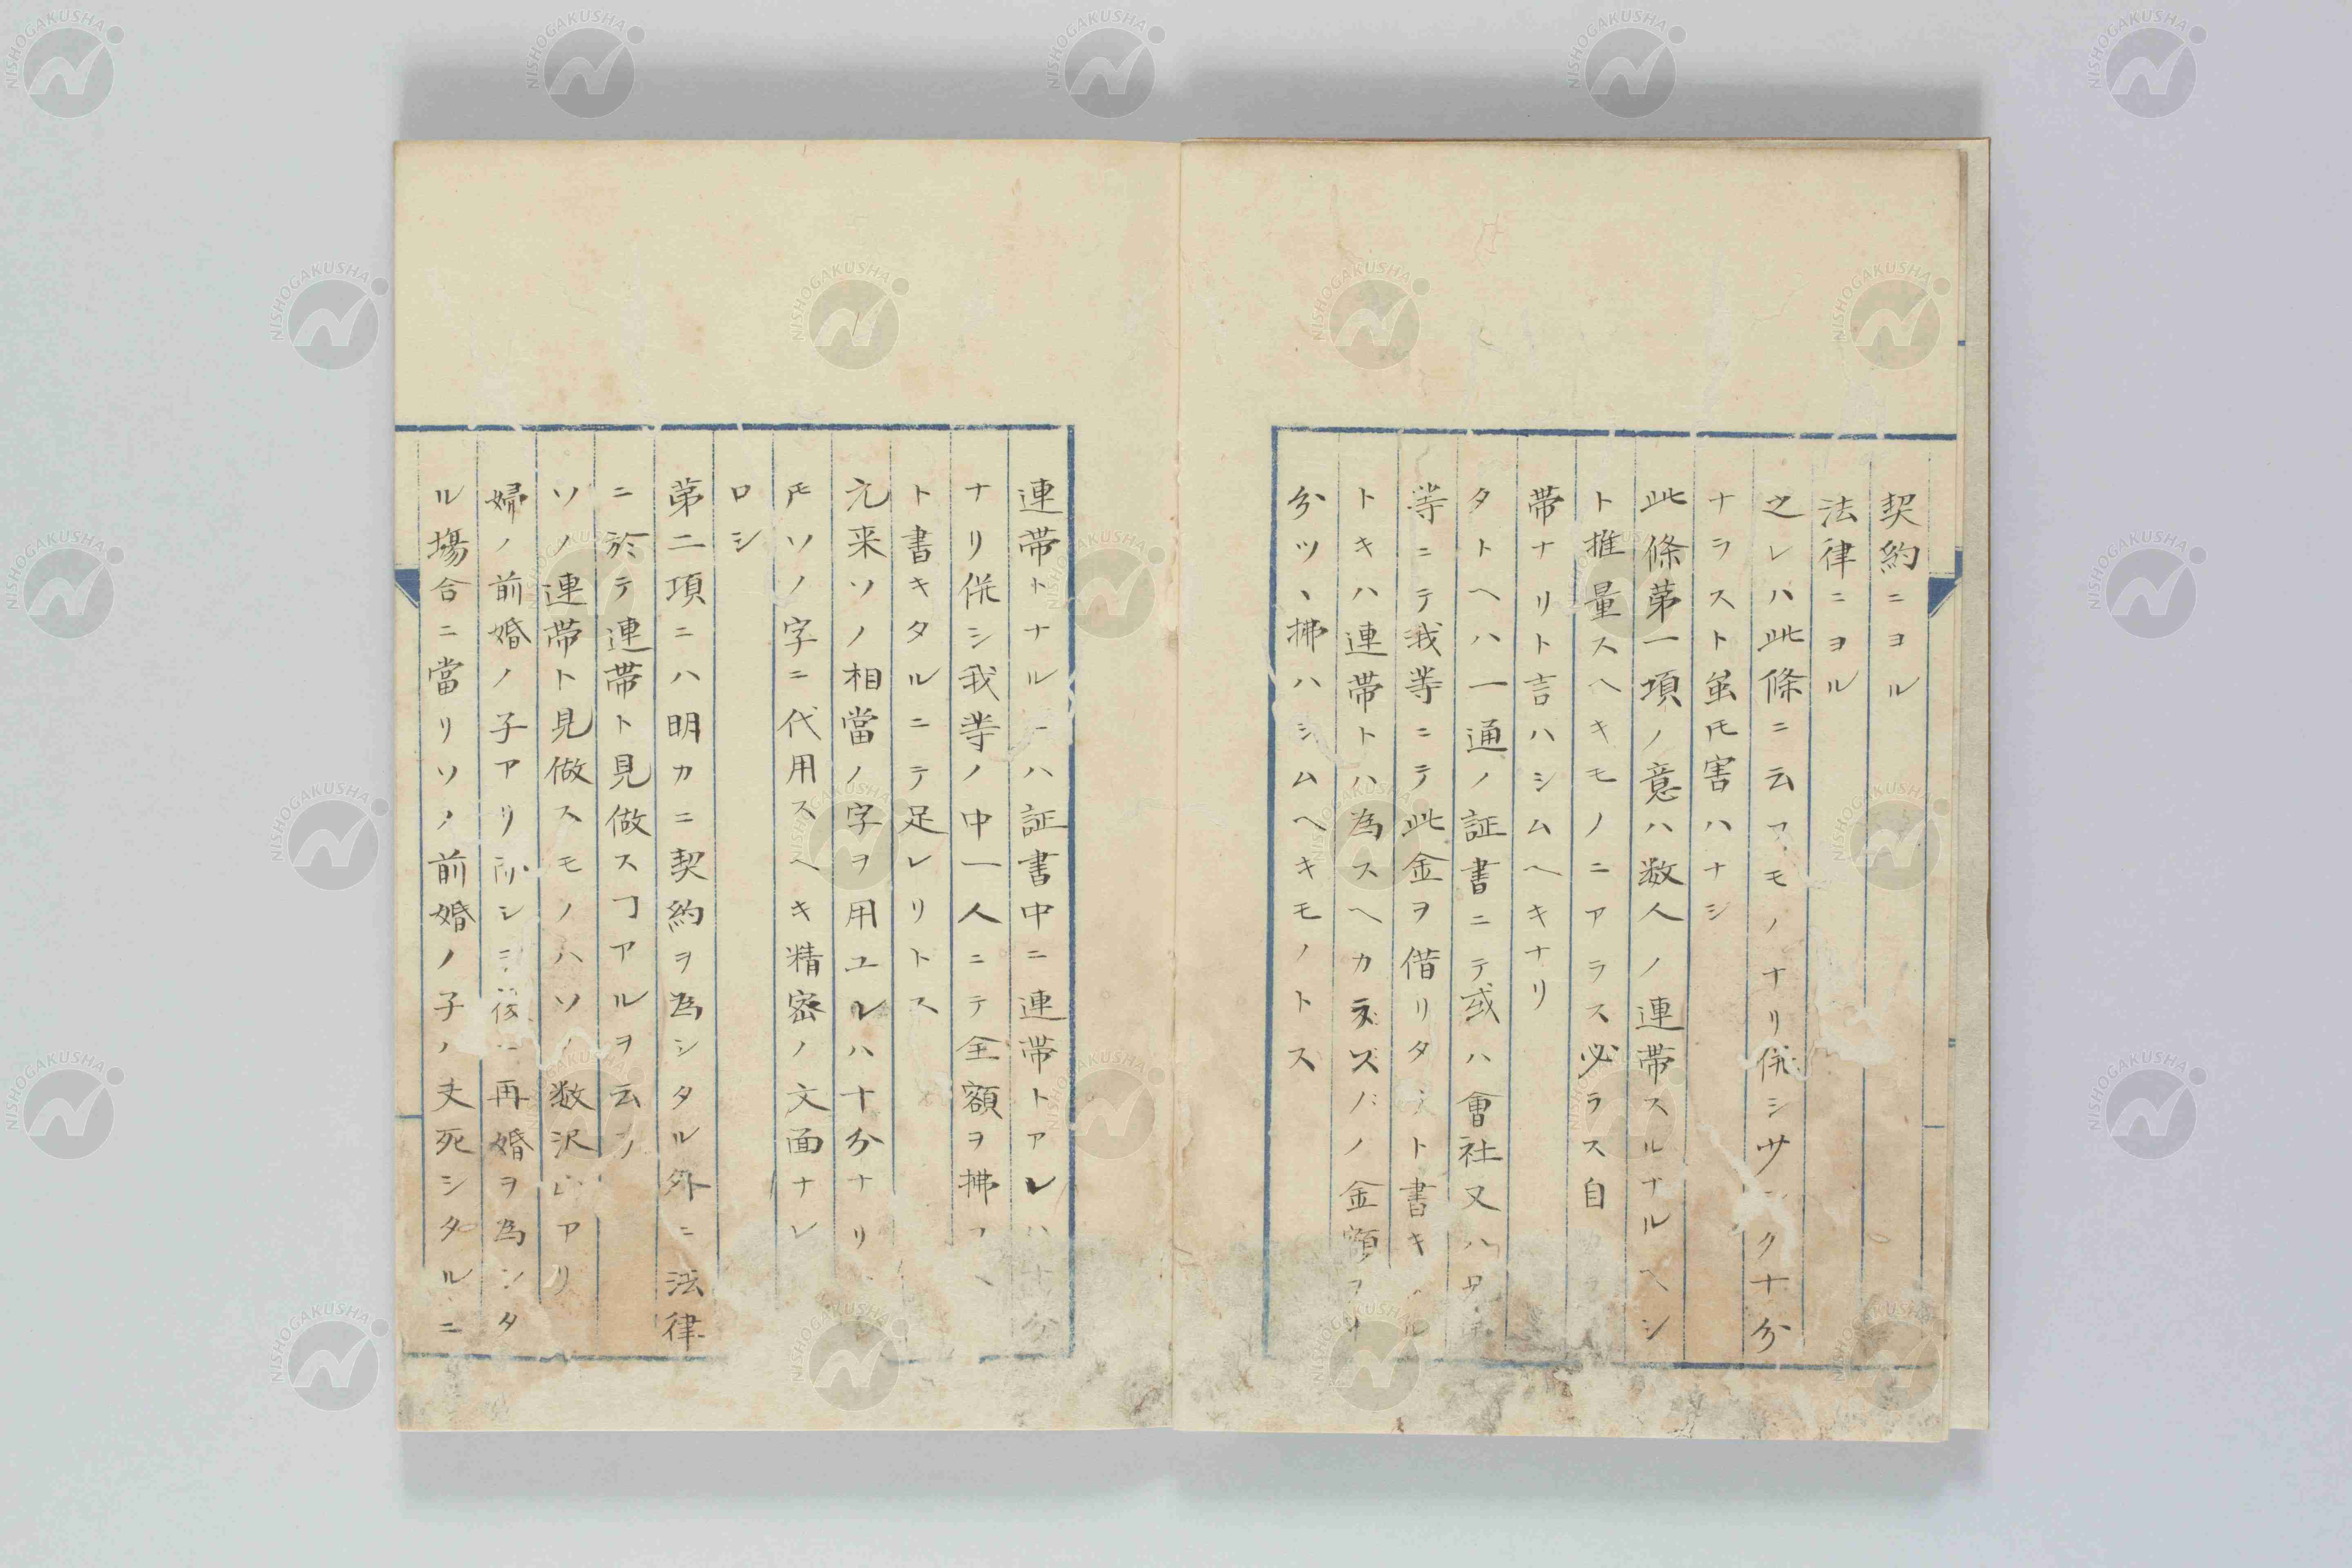 契約ニヨル
法律ニヨル
之レハ此條ニ云フモノナリ併シサシク十分
ナラスト虽𪜈害ハナシ
此條第一項ノ意ハ数人ノ連帯スルナルヘシ
ト推量スヘキモノニアラス必ラス自
帯ナリト言ハシムヘキナリ
タトヘハ一通ノ証書ニテ或ハ會社又ハ
等ニテ我等ニテ此金ヲ借リタリト書キ
トキハ連帯トハ為スヘカラズノ金額ヲ
分ツヽ拂ハシムヘキモノトス
連帯トナルニハ証書中ニ連帯トアレハ十分
ナリ併シ我等ノ中一人ニテ全額ヲ拂フヘ
ト書キタルニテ足レリトス
元来ソノ相當ノ字ヲ用ユレハ十分ナリ
𪜈ソノ字ニ代用スヘキ精密ノ文面ナレ
ロシ
第二項ニハ明カニ契約ヲ為シタル外ニ法律
ニ於テ連帯ト見做スヿアルヲ云フ
ソノ連帯ト見做スモノハソノ数沢山アリ
婦ノ前婚ノ子アリ シ 後 再婚ヲ為シタ
ル塲合ニ當リソノ前婚ノ子ノ丈死シタルニ